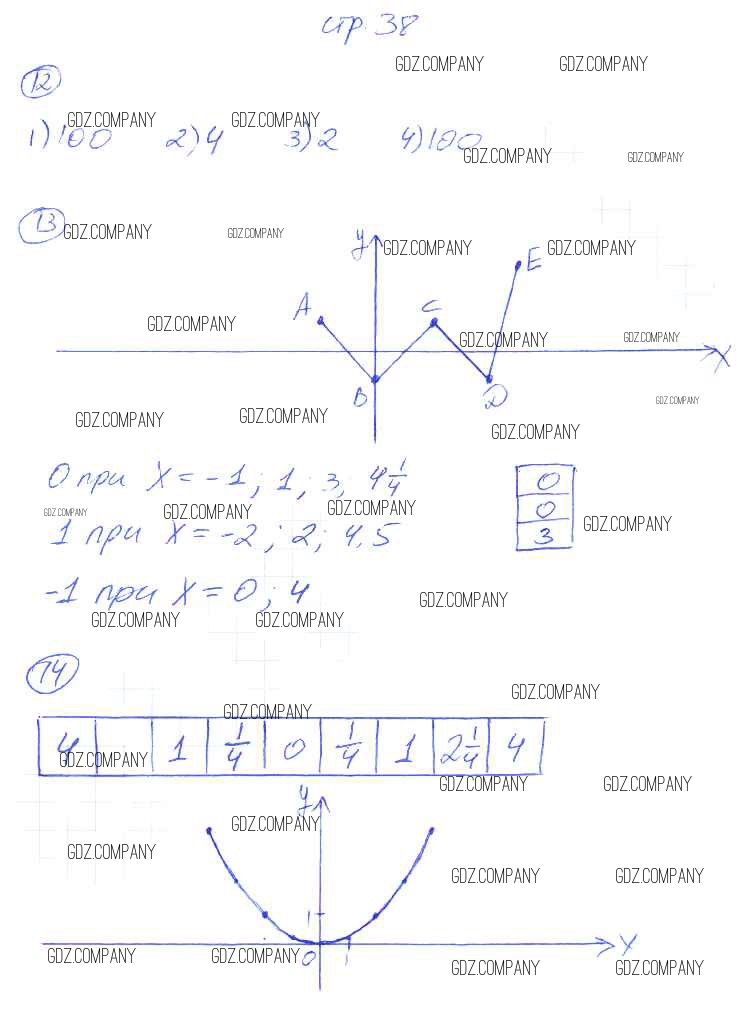 стр. 38
GDZ.COMPANY GDZ.COMPANY
12
GDZ.COMPANY GDZ.COMPANY
1) 100 2) 4 3) 2 4) 100
GDZ.COMPANY GDZ.COMPANY
13 GDZ.COMPANY GDZ.COMPANY
y GDZ.COMPANY GDZ.COMPANY
E
A C
GDZ.COMPANY GDZ.COMPANY GDZ.COMPANY
X
B D GDZ.COMPANY
GDZ.COMPANY GDZ.COMPANY GDZ.COMPANY
0 при X = -1; 1; 3, 4 1/4 0
GDZ.COMPANY GDZ.COMPANY GDZ.COMPANY 0 GDZ.COMPANY
1 при X = -2; 2; 4,5 3
-1 при X = 0; 4 GDZ.COMPANY
GDZ.COMPANY GDZ.COMPANY
14
GDZ.COMPANY
GDZ.COMPANY
4 1 1/4 0 1/4 1 2 1/4 4
GDZ.COMPANY
GDZ.COMPANY GDZ.COMPANY
y
GDZ.COMPANY
GDZ.COMPANY
GDZ.COMPANY GDZ.COMPANY
1
X
GDZ.COMPANY GDZ.COMPANY 0 1
GDZ.COMPANY GDZ.COMPANY